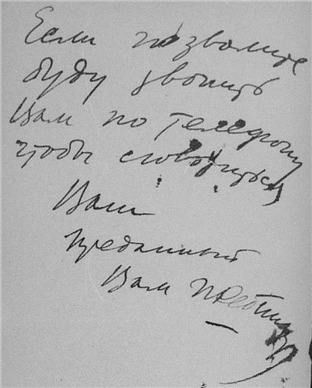 Если позволите
буду звонить
Вам по телефону
чтобы сговориться
Ваш
преданный
Вам